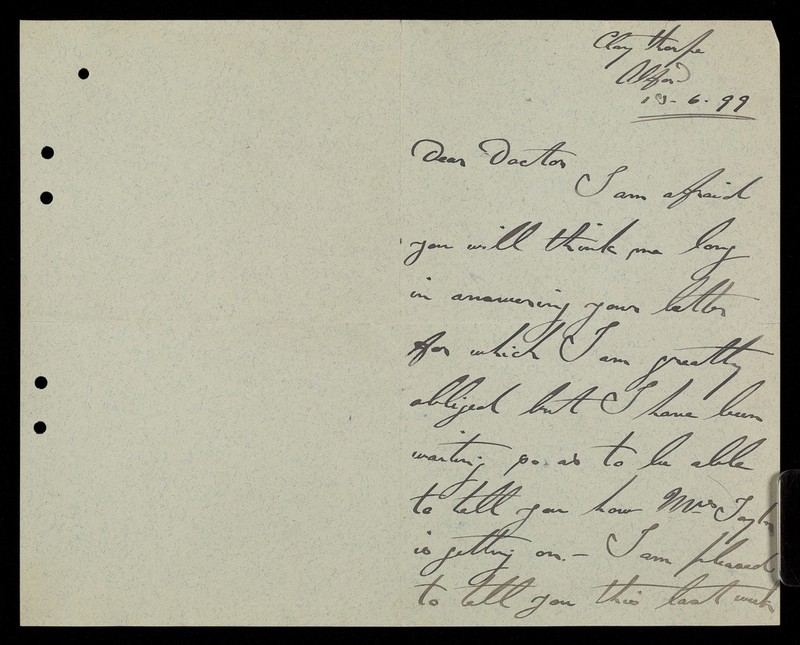 Clay thorpe
Alford
- 6 - 99
Dear Doctor
I am afraid
you will think me long
in answering your letter
for which I am greatly
obliged but I have been
waiting so as to be able
to tell you how Mrs Taylor
is getting on. - I am pleased
to tell you this last week